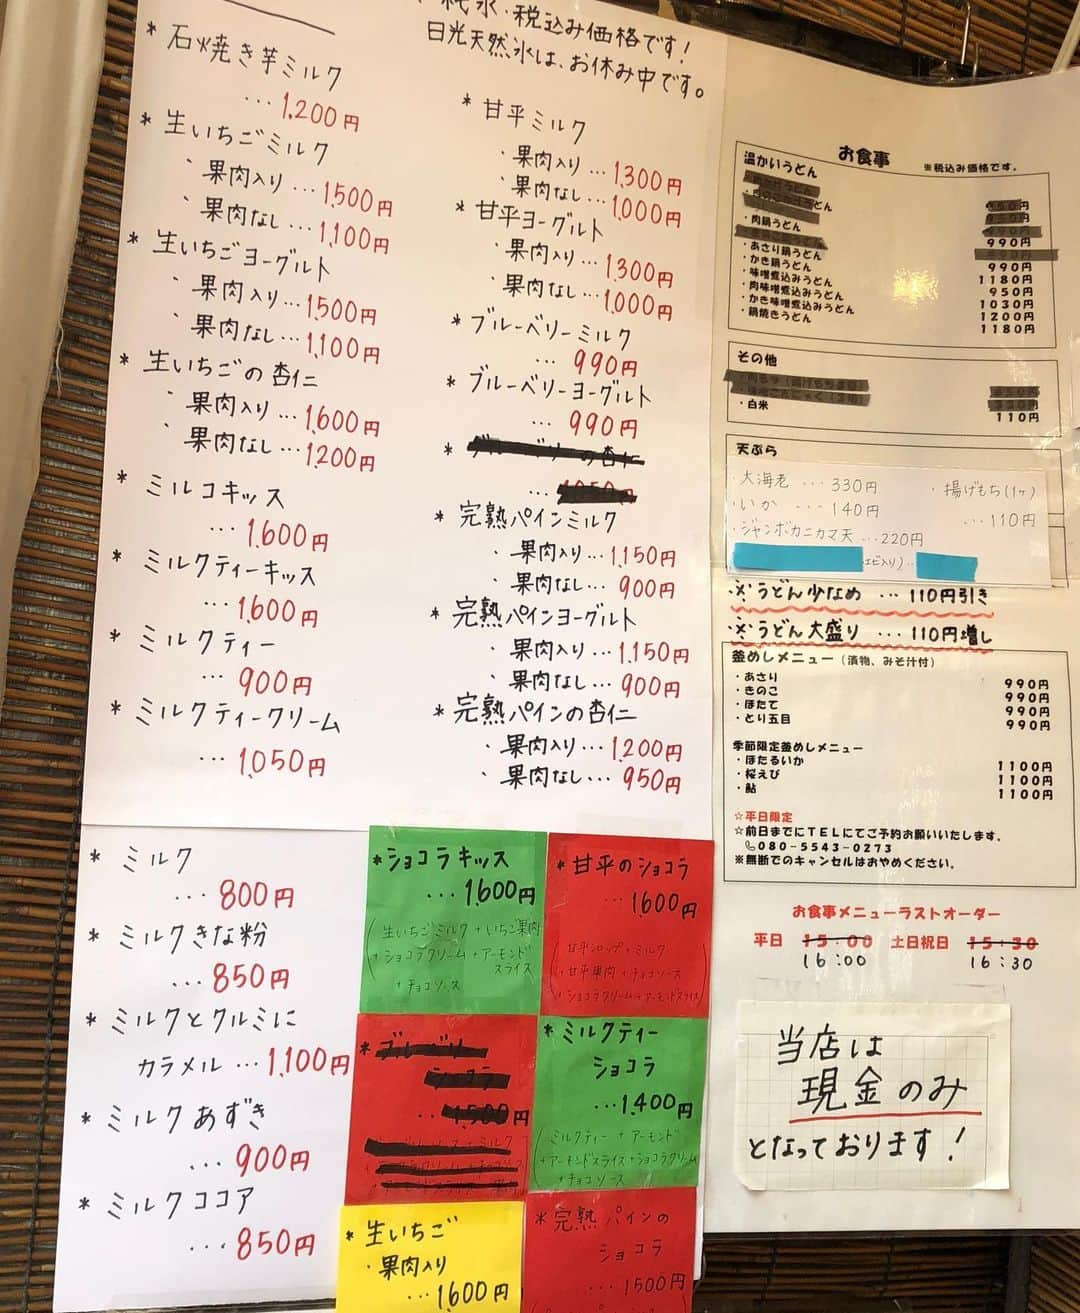 純氷・税込み価格です!
日光天然氷は、お休み中です。
* 石焼き芋ミルク
… 1,200円
* 生いちごミルク
・果肉入り … 1,500円
・果肉なし … 1,100円
* 生いちごヨーグルト
・果肉入り … 1,500円
・果肉なし … 1,100円
* 生いちごの杏仁
・果肉入り … 1,600円
・果肉なし … 1,200円
* ミルコキッス
… 1,600円
* ミルクティーキッス
… 1,600円
* ミルクティー
… 900円
* ミルクティークリーム
… 1,050円
* 甘平ミルク
・果肉入り … 1,300円
・果肉なし … 1,000円
* 甘平ヨーグルト
・果肉入り … 1,300円
・果肉なし … 1,000円
* ブルーベリーミルク
… 990円
* ブルーベリーヨーグルト
… 990円
* ブルーベリーの杏仁
… 1,050円
* 完熟パインミルク
・果肉入り … 1,150円
・果肉なし … 900円
* 完熟パインヨーグルト
・果肉入り … 1,150円
・果肉なし … 900円
* 完熟パインの杏仁
・果肉入り … 1,200円
・果肉なし … 950円
* ミルク
… 800円
* ミルクきな粉
… 850円
* ミルクとクルミに
カラメル … 1,100円
* ミルクあずき
… 900円
* ミルクココア
… 850円
* ショコラキッス
… 1,600円
(生いちごミルク+いちご果肉
+ショコラクリーム+アーモンド
スライス
+チョコソース
* 甘平のショコラ
… 1,600円
(甘平シロップ+ミルク
+甘平果肉+チョコソース
+ショコラクリーム+アーモンドスライス)
* ブルーベリー
ショコラ
… 1,500円
* ミルクティー
ショコラ
… 1,400円
(ミルクティー+アーモンド
+アーモンドスライス+ショコラクリーム
+チョコソース)
* 生いちご
・果肉入り
… 1,600円
* 完熟パインの
ショコラ
… 1500円
お食事
※税込み価格です。
温かいうどん
・肉鍋うどん 990円
・あさり鍋うどん 990円
・かき鍋うどん 1180円
・味噌煮込みうどん 950円
・肉味噌煮込みうどん 1030円
・かき味噌煮込みうどん 1200円
・鍋焼きうどん 1180円
その他
・白米 110円
天ぷら
・大海老 … 330円
・いか … 140円
・ジャンボカニカマ天 … 220円
エビ入り) …
・揚げもち(1ヶ)
… 110円
※うどん少なめ … 110円引き
※うどん大盛り … 110円増し
釜めしメニュー(漬物、みそ汁付)
・あさり 990円
・きのこ 990円
・ほたて 990円
・とり五目 990円
季節限定釜めしメニュー
・ほたるいか 1100円
・桜えび 1100円
・鮎 1100円
☆平日限定
☆前日までにTELにてご予約お願いいたします。
080-5543-0273
※無断でのキャンセルはおやめください。
お食事メニューラストオーダー
平日 15:00 土日祝日 15:30
16:00 16:30
当店は
現金のみ
となっております!